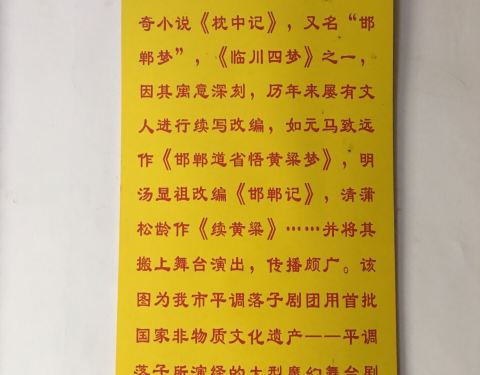 奇小说《枕中记》，又名“邯
郸梦”，《临川四梦》之一，
因其寓意深刻，历年来屡有文
人进行续写改编，如元马致远
作《邯郸道省悟黄粱梦》，明
汤显祖改编《邯郸记》，清蒲
松龄作《续黄粱》……并将其
搬上舞台演出，传播颇广。该
图为我市平调落子剧团用首批
国家非物质文化遗产——平调
落子所演绎的大型魔幻舞台剧